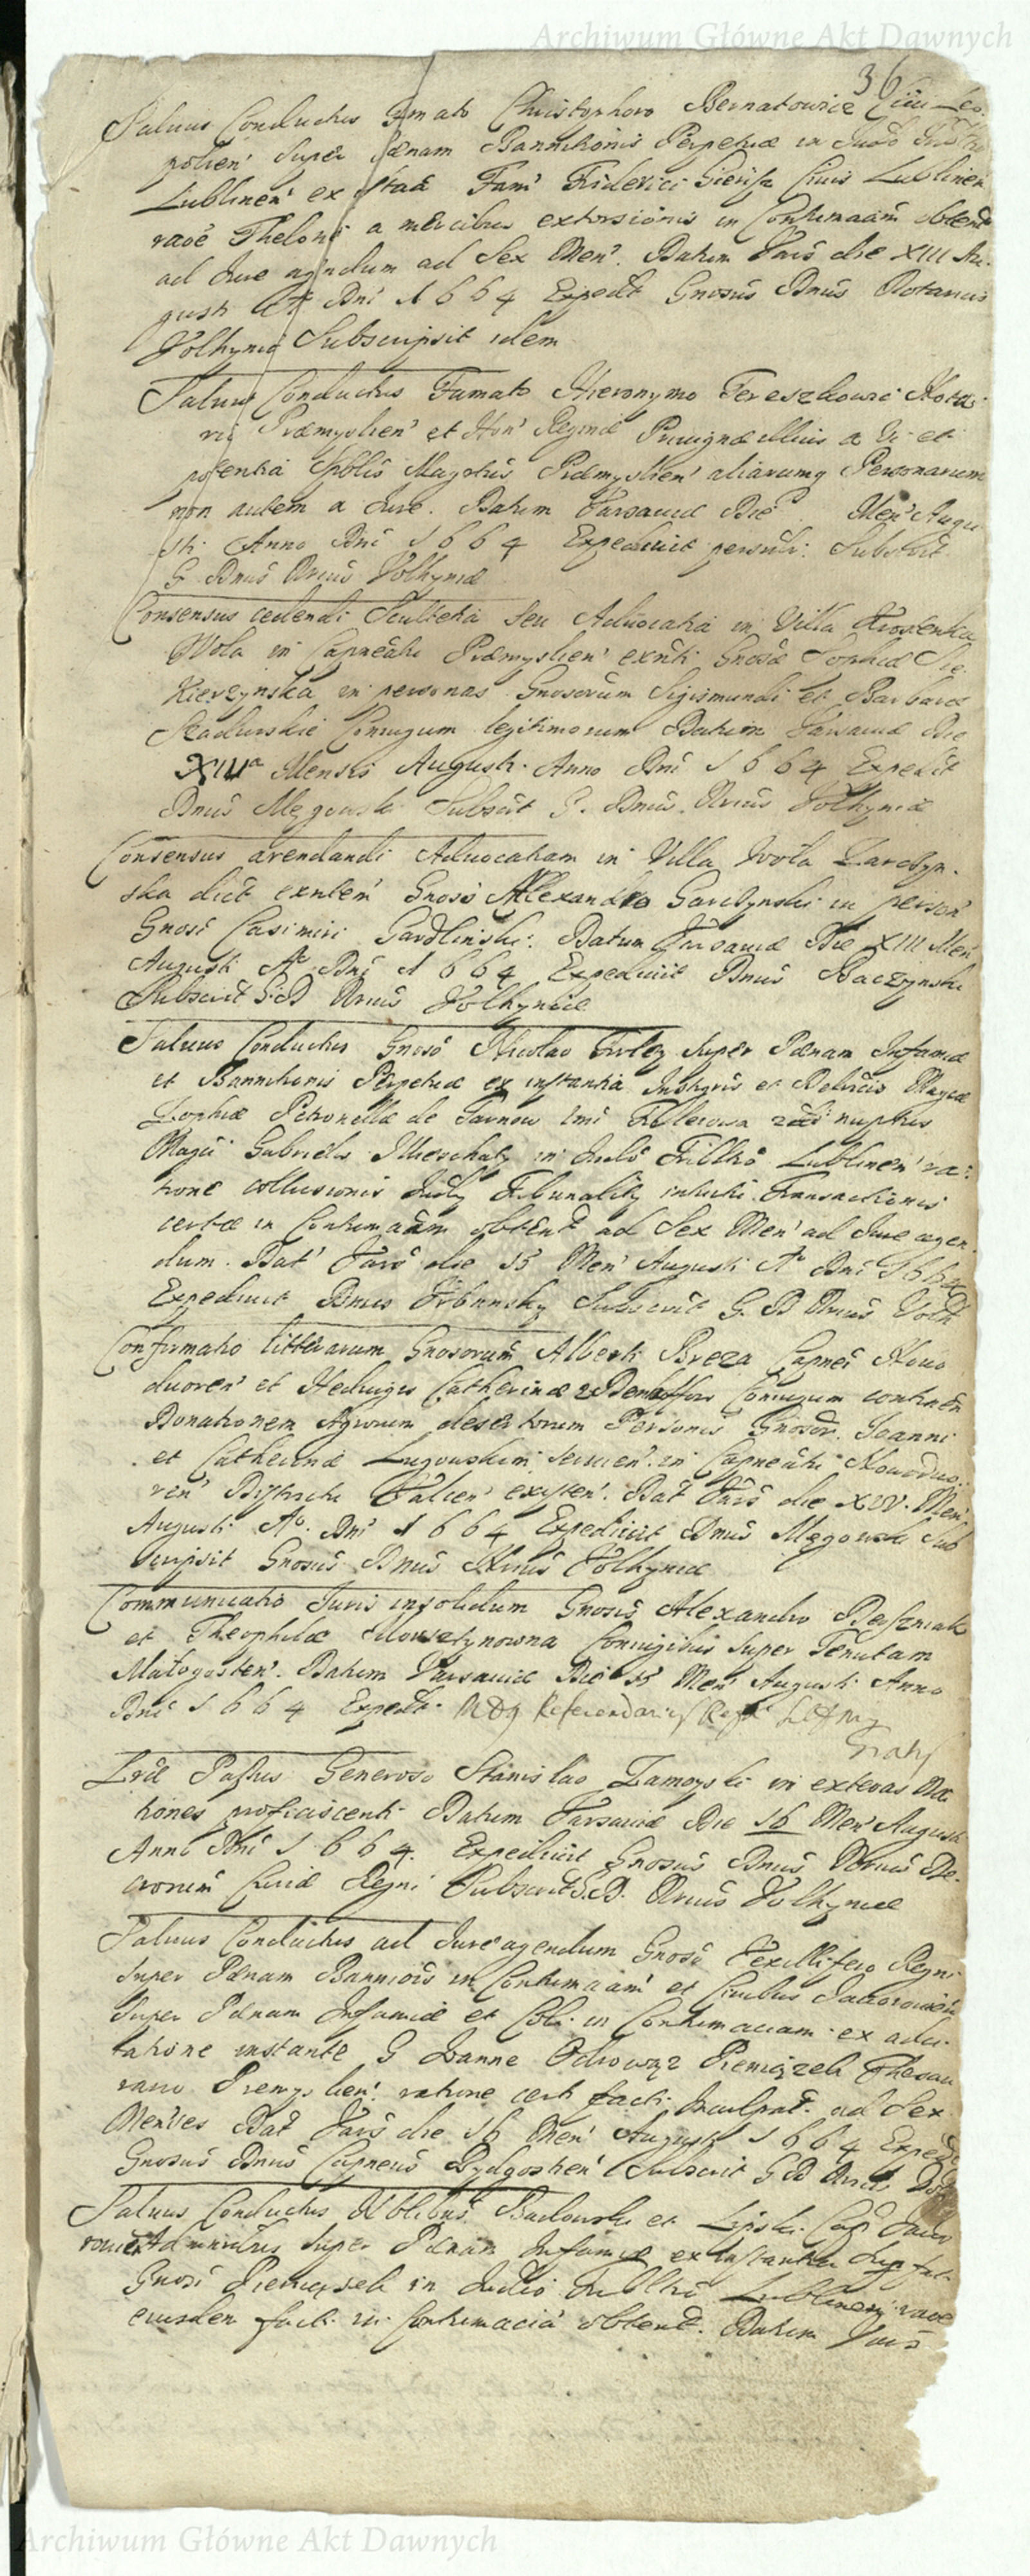 Archiwum Główne Akt Dawnych
36
Salvus Conductus Fmato Christophoro Bernatowicz Civi Leo
polien' super Pænam Bannitionis Perpetuæ in Judo
Lublinen' ex Fam' Friderici Civis Lublinen
raõe Thelonii a mercibus extorsionis in Contumaciam obtent
ad Jure agendum ad Sex Men'. Datum Vars die XIII Au-
gusti Aº Dni 1664 Expedit Gnosus Dnus Notarius
Volhyniæ Subscripsit idem
Salvus Conductus Famato Hieronymo Tereszkowic Nota-
rio Præmyslien' et Hon' Reginæ Privignæ illius a Vi et
potentia Spblis Magrtus Præmyslien' aliarumq Personarum
non autem a Jure. Datum Varsaviæ Die Men' Augu
sti Anno Dni 1664 Expedivit Subscrit
G Dnus Nrius Volhyniæ
Consensus cedendi Scultetia seu Advocatia in Villa
Wola in Capneatu Præmyslien' exnti Gnosæ Sophiæ Sie
kierzynska in personas Gnosorum Sigismundi et Barbaræ
Conjugum legitimorum Datum Varsaviæ Die
XIIIa Mensis Augusti Anno Dni 1664 Expedit
Dnus Męgowski Subscrit G. Dnus Nrius Volhyniæ
Consensus arendandi Advocatiam in Villa Wola Zarczyn-
ska dict exnten' Gnoso Allexandro Garczynski in person
Gnosi Casimiri Gardlinski. Datum Varsaviæ Die XIII Men
Augusti Aº Dni 1664 Expedivit Dnus Baczynski
Subscrit G. D Nrius Volhyniæ
Salvus Conductus Gnoso Nicolao Firley super Pænam Infamiæ
et Bannitionis Perpetuæ ex instantia Instigris et Delatris Magcæ
Sophiæ Petronellæ de Tarnow 1mi 2di nuptus
Magci Gabrielis in Judo Tribltio Lublinen' ra-
tione collusionis Judy Tribunality intuitu Transactionis
certæ in Contumaciam obtent ad Sex Men' ad Jure agen
dum. Dat' Vars die 15 Men' Augusti Aº Dni 1664
Expedivit Dnus Urbansky Subscrit G. D Nrius Volh
Confirmatio litterarum Gnosorum Alberti Breza Capnei Novo
dvoren' et Hedvigis Catherinæ Conjugum continen
Donationem Agrorum desertorum Personis Gnosor. Joanni
et Catherinæ Lugowskim servien' in Capneatu Novodvo-
ren' Districtu Valcen' existen'. Dat Vars die XIV. Men'
Augusti Aº. Dni 1664 Expedivit Dnus Męgowski Sub
scripsit Gnosus Dnus Nrius Volhyniæ
Communicatio Juris insolidum Gnosis Alexandro
et Theophilæ Conjugibus super Tenutam
Małogosten'. Datum Varsaviæ Die 15 Men' Augusti Anno
Dni 1664 Expedit. Referendarius Regni
Gratis
Lræ Passus Generoso Stanislao Zamoyski in exteras Na
tiones proficiscenti Datum Varsaviæ Die 16 Men' Augusti
Anni Dni 1664. Expedivit Gnosus Dnus Nrius De-
cretorum Curiæ Regni Subscrit G. D. Nrius Volhyniæ
Salvus Conductus ad Jure agendum Gnoso Vexillifero Regni
super Pænam Bannitiois in Contumaciam et Civibus Javorovien
super Pænam Infamiæ et in Contumaciam ex adci-
tatione instante G Joanne Odrowąz Pieniązek Thesau
rario Premyslien' ratione certi facti Inculpat. ad Sex
Menses Dat Vars die 16 Men' Augusti 1664 Exped
Gnosus Dnus Capneus Bydgosthien' Subscrit G D Nrius
Salvus Conductus Nblibus et Lipski Cap Javo
rovien Adminribus super Pænam Infamiæ ex Instantia
Gnosi Pieniązek in Judio Tribltio Lublinen' raõe
eiusdem facti in Contumacia obtent. Datum Vars
Archiwum Główne Akt Dawnych